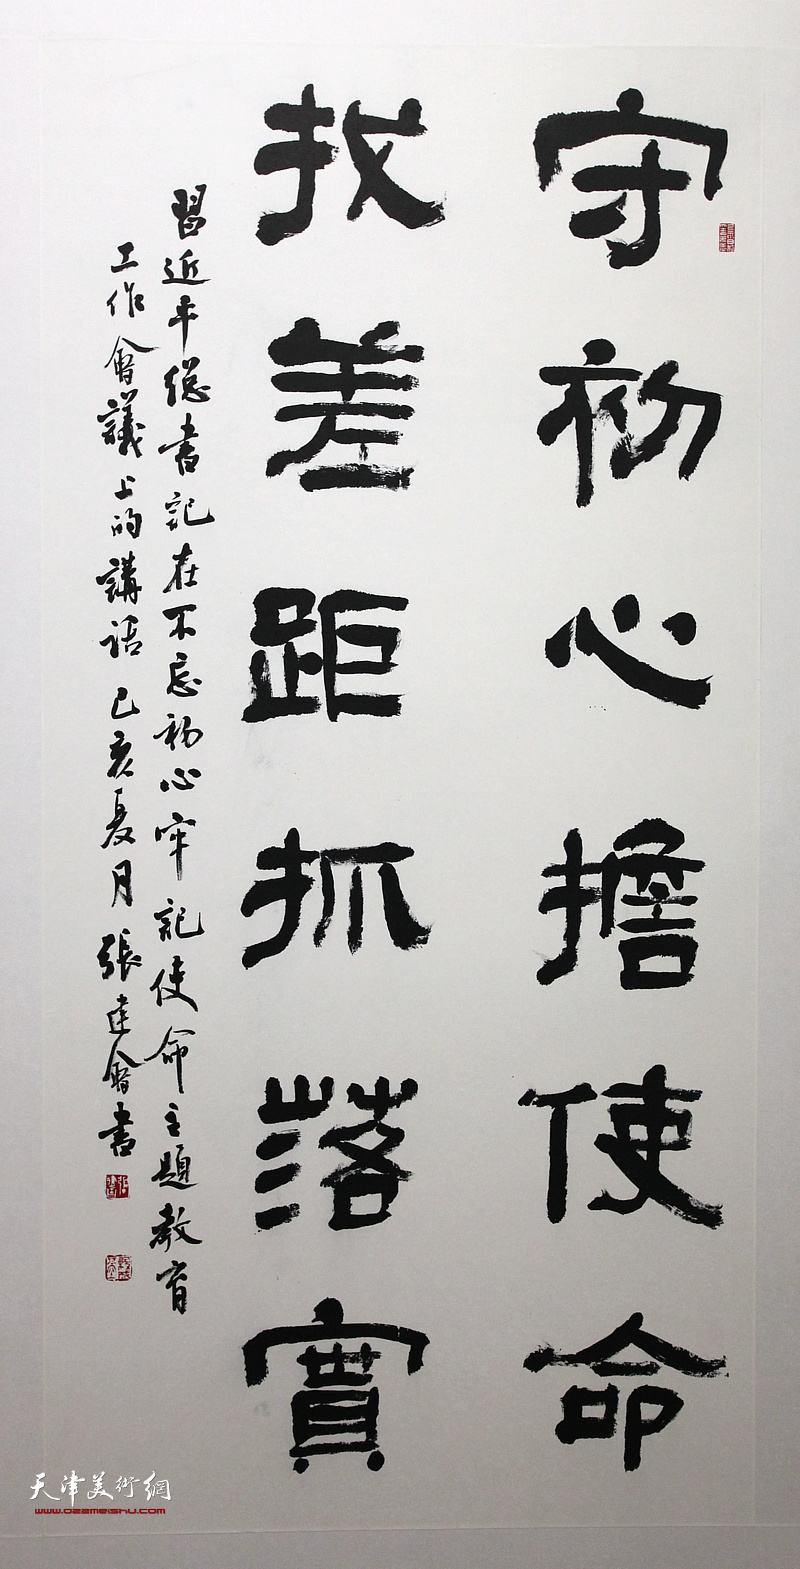 守初心擔使命
找差距抓落實
習近平總書記在不忘初心牢記使命主題教育
工作會議上的講話己亥夏月張建會書
天津美術網
www.ozzmeishu.com